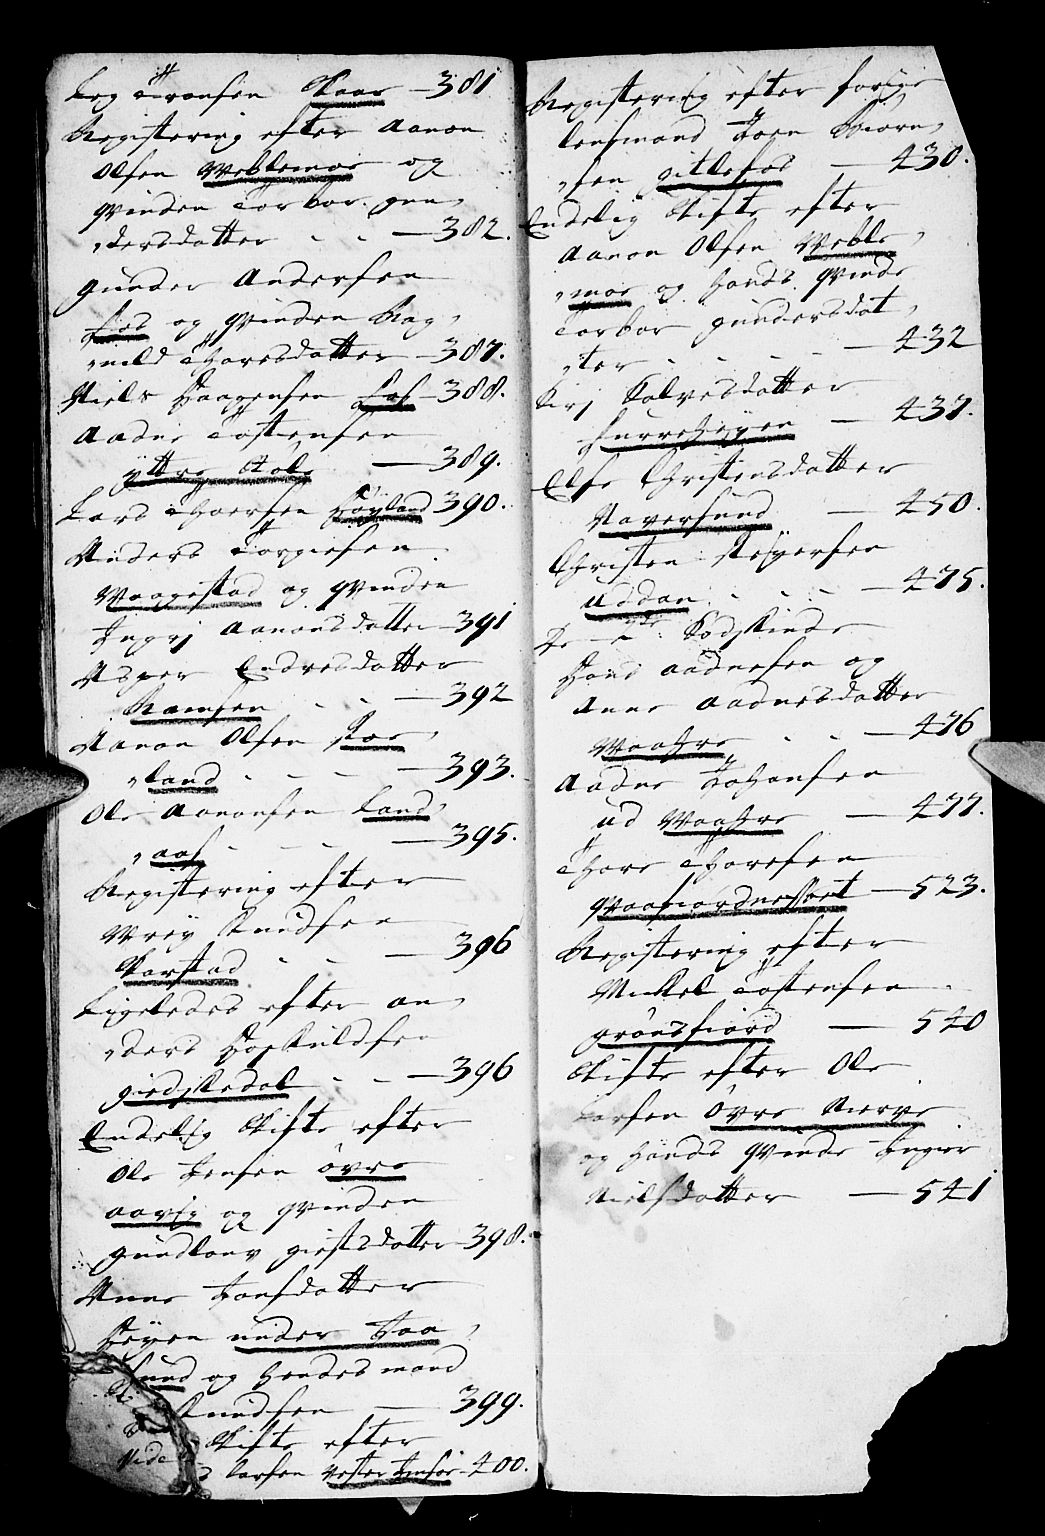 Tronsen Skaar — 381
Registering efter Aanon
Olsen Weblemoe og
Qvinden Torbor gun„
„dersdatter - - — 382.
Gunder Andersen
Foss og Qvinden Rag„
„nild Thoresdatter — 387.
Niels Haagensen Foss — 388.
Aadne Tostensen
Yttre Aob — 389.
Lars Thoersen Høyland 390.
Anders Torgiesen
Waagestad og Qvinden
Ingrj Aanonsdatter — 391
Asper Endresdatter
Ramsen - - — 392
Aanon Olsen
„land - - - — 393.
Ole Aanonsen Land„
„aas - - - — 395.
Registering efter
Knudsen
Skarstad - - — 396
Ligeledes efter An„
„ders Hoskuldsen
Giedskedal - - — 396
Endelig Skifte efter
Ole Jensen Øvre
og Qvinden
Gundlauv Giestsdatter — 398.
Anne Jonsdatter
Høyen under Haa„
„sund og hendes mand
Knudsen — 399.
Skifte efter
Larsen Vester — 400.
Registering efter forige
lensmand Joen Biørn„
„sen Gitlefos — 430.
Endelig Skifte efter
Aanon Olsen Weble„
„moe og hands Qvinde
Torbor Gundersdat„
„ter - - - - — 432
Kirj Salvesdatter
Furrehøyen — 437.
Else Christensdatter
Naversund — 450.
Christen
Uddan - - - — 475.
Sødskinde
Hans Aadnesen og
Anne Aadnesdatter
Waahre - - — 476
Aadne Johansen
ud Waahre — 477.
Thore Thoresen
Qvaafiordnesset — 523.
Registering efter
Mickel Tostensen
Grønsfiord — 540
Skifte efter Ole
Larsen Øvre Nerve
og Hands Qvinde Inger
Nielsdatter — 541